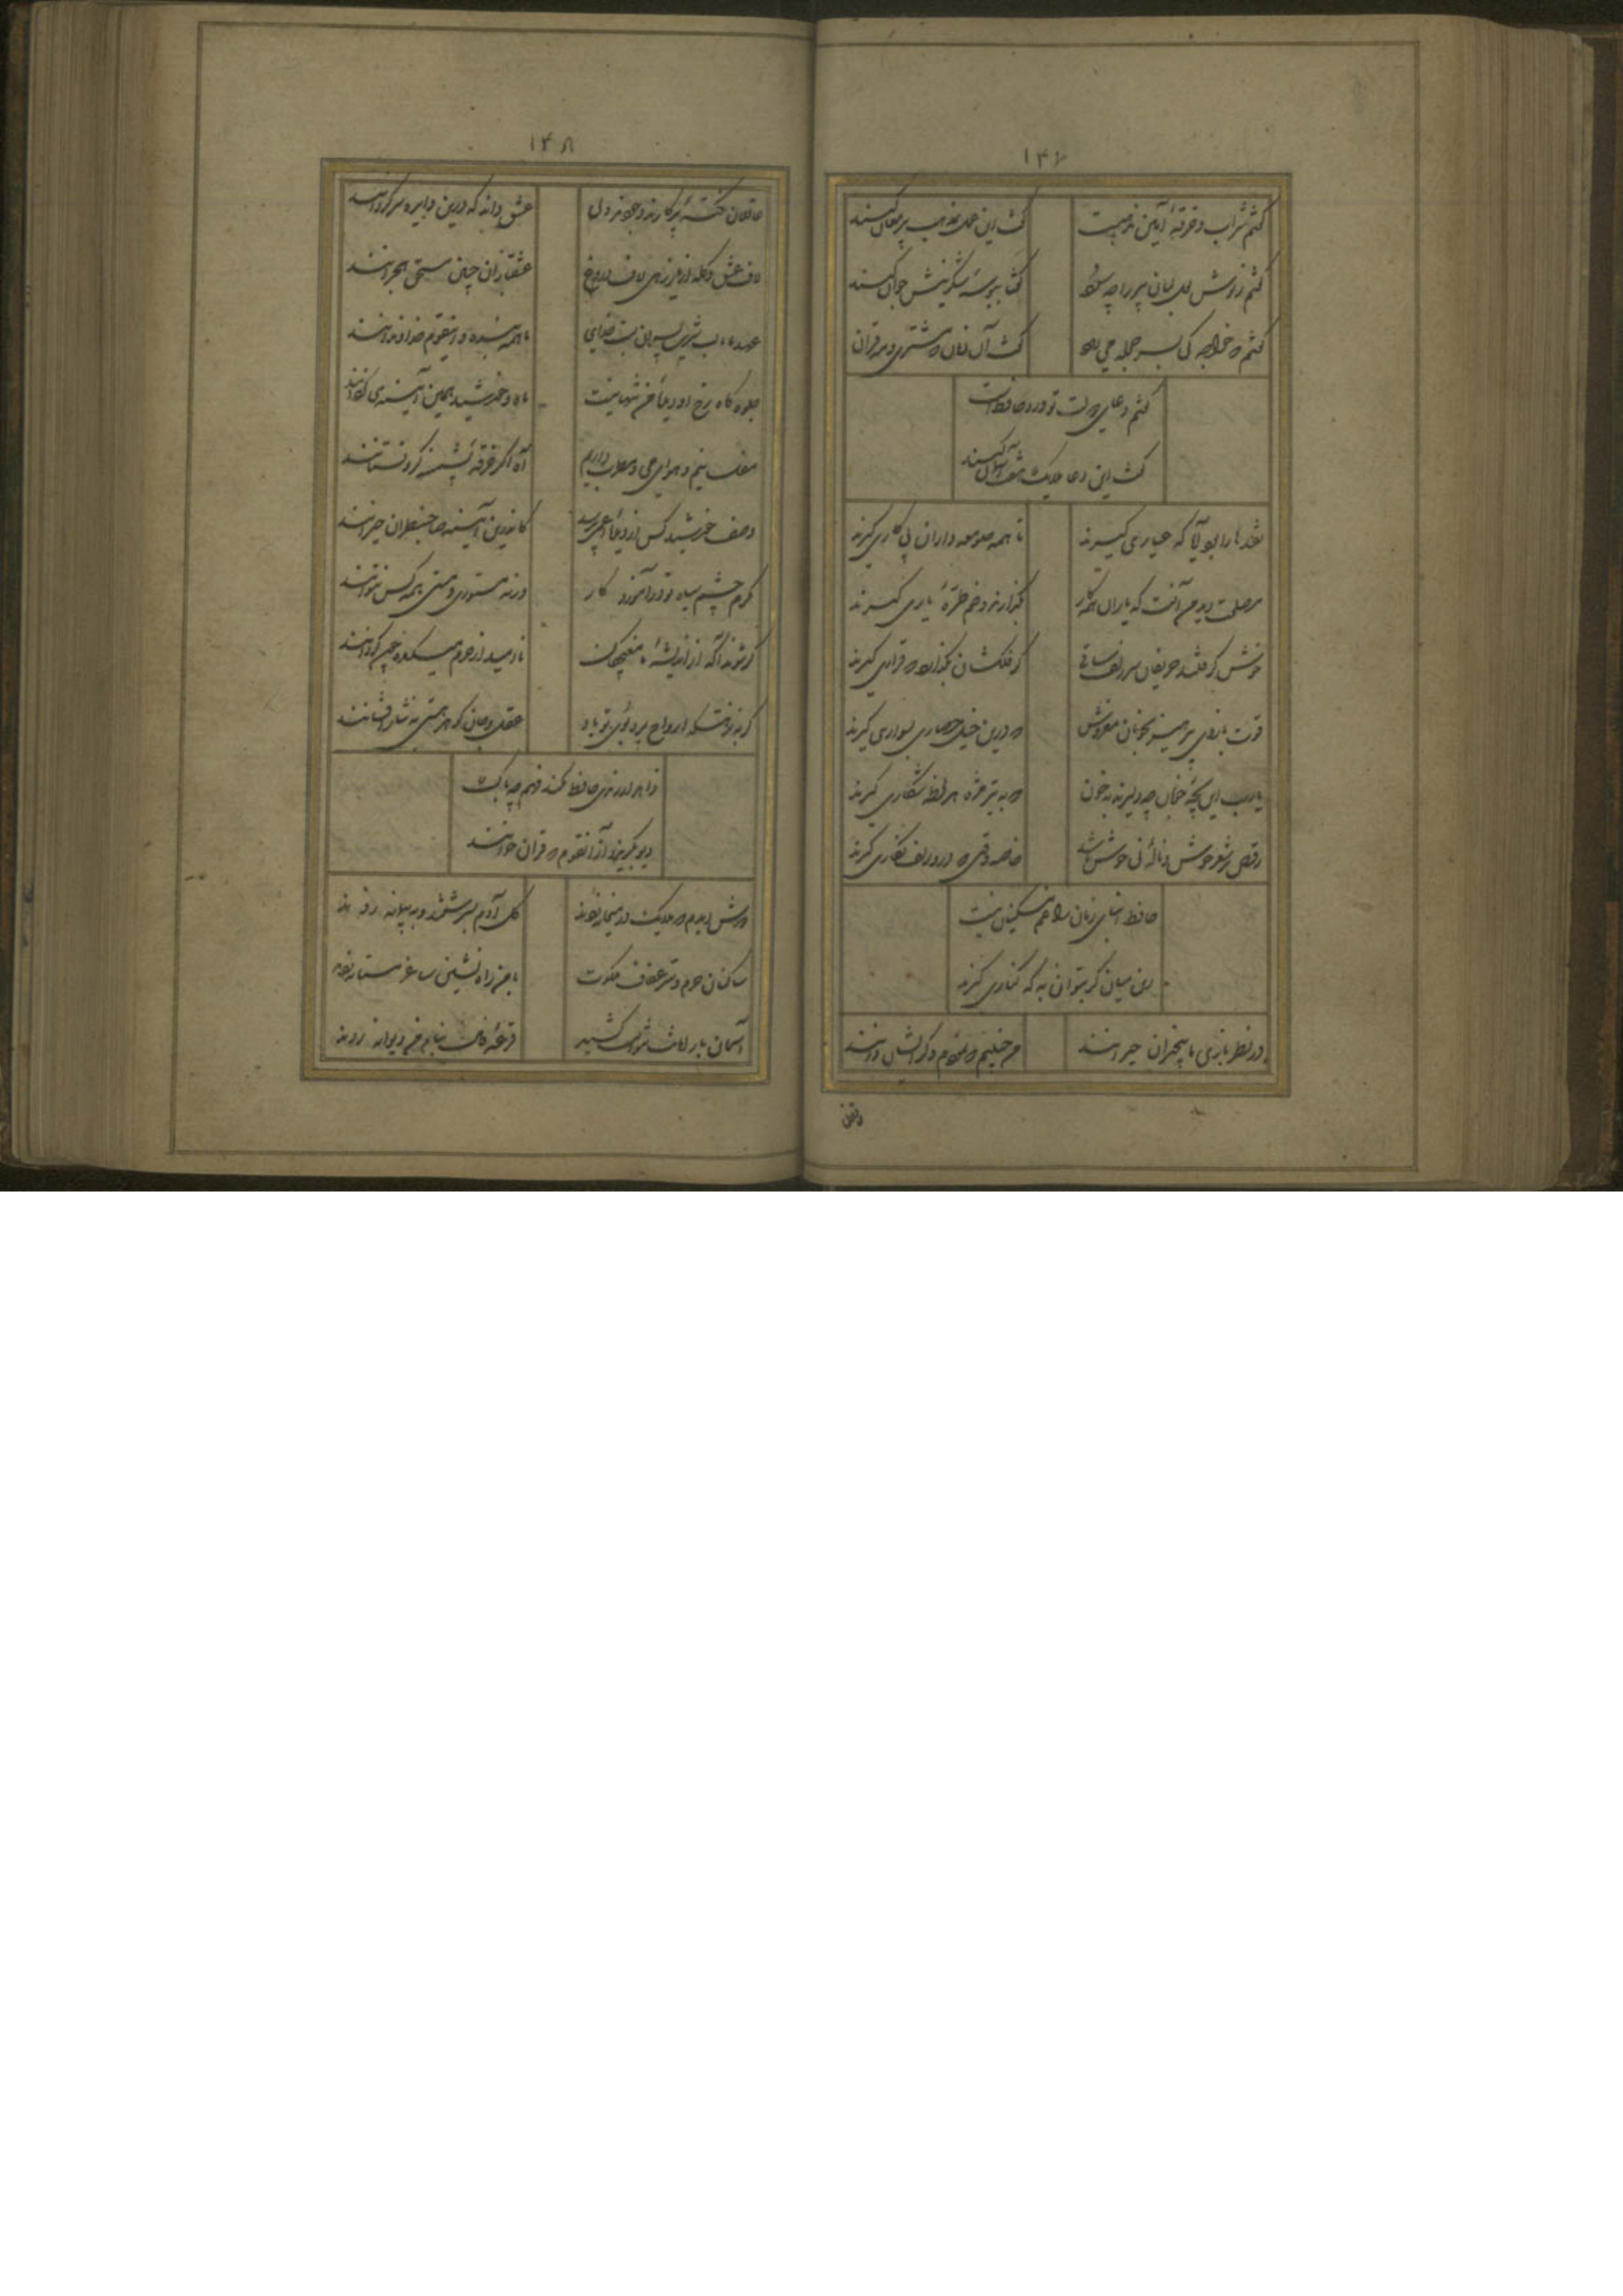 ۱۴۷
گفتم شراب و خرقه آیین مذهبست
گفت این عمل بمذهب پیر مغان کنند
گفتم ز نوش لعل لبان پیر را چه سود
گفتا ببوسه شکرینش جوان کنند
گفتم که خواجه کی بسر حجله می رود
گفت آن زمان که مشتری و مه قران کنند
گفتم دعای دولت تو ورد حافظ است
گفت این دعا ملایک هفت آسمان کنند
نقدها را بود آیا که عیاری گیرند
تا همه صومعه داران پی کاری گیرند
مصلحت دید من آنست که یاران همه کار
بگذارند و خم طره یاری گیرند
خوش گرفتند حریفان سر زلف ساقی
گر فلکشان بگذارد که قراری گیرند
قوت بازوی پرهیز بخوبان مفروش
که درین خیل حصاری بسواری گیرند
یارب این بچه ترکان چه دلیرند بخون
که به تیر مژه هر لحظه شکاری گیرند
رقص بر شعر خوش و ناله نی خوش باشد
خاصه وقتی که درو زلف نگاری گیرند
حافظ ابنای زمان را غم مسکینان نیست
زین میان گر بتوان به که کناری گیرند
در نظر بازی ما بیخبران حیرانند
من چنینم که نمودم دگر ایشان دانند
۱۴۸
عاقلان نقطه پرگار وجودند ولی
عشق داند که درین دایره سرگردانند
لاف عشق و گله از یار زهی لاف دروغ
عشقبازان چنین مستحق هجرانند
عهد ما با لب شیرین پسران بست خدای
ما همه بنده و اینقوم خداوندانند
جلوه گاه رخ او دیده من تنها نیست
ماه و خورشید همین آیینه می گردانند
مفلسانیم و هوای می و مطرب داریم
آه اگر خرقه پشمینه گرو نستانند
وصف خورشید
کاندرین آیینه صاحبنظران حیرانند
گرم چشم سیاه تو در آموزد کار
ورنه مستوری و مستی همه کس نتوانند
گر شوند آگه از اندیشه ما مغبچگان
گر به نزهتگه ارواح برد بوی تو باد
عقل و جان گوهر هستی به نثار افشانند
زاهد ار رندی حافظ نکند فهم چه باک
دیو بگریزد از آنقوم که قرآن خوانند
دوش دیدم که ملایک در میخانه زدند
گل آدم بسرشتند و به پیمانه زدند
ساکنان حرم و ستر عفاف ملکوت
با من راه نشین ساغر مستانه زدند
آسمان بار امانت نتوانست کشید
قرعه فال بنام من دیوانه زدند